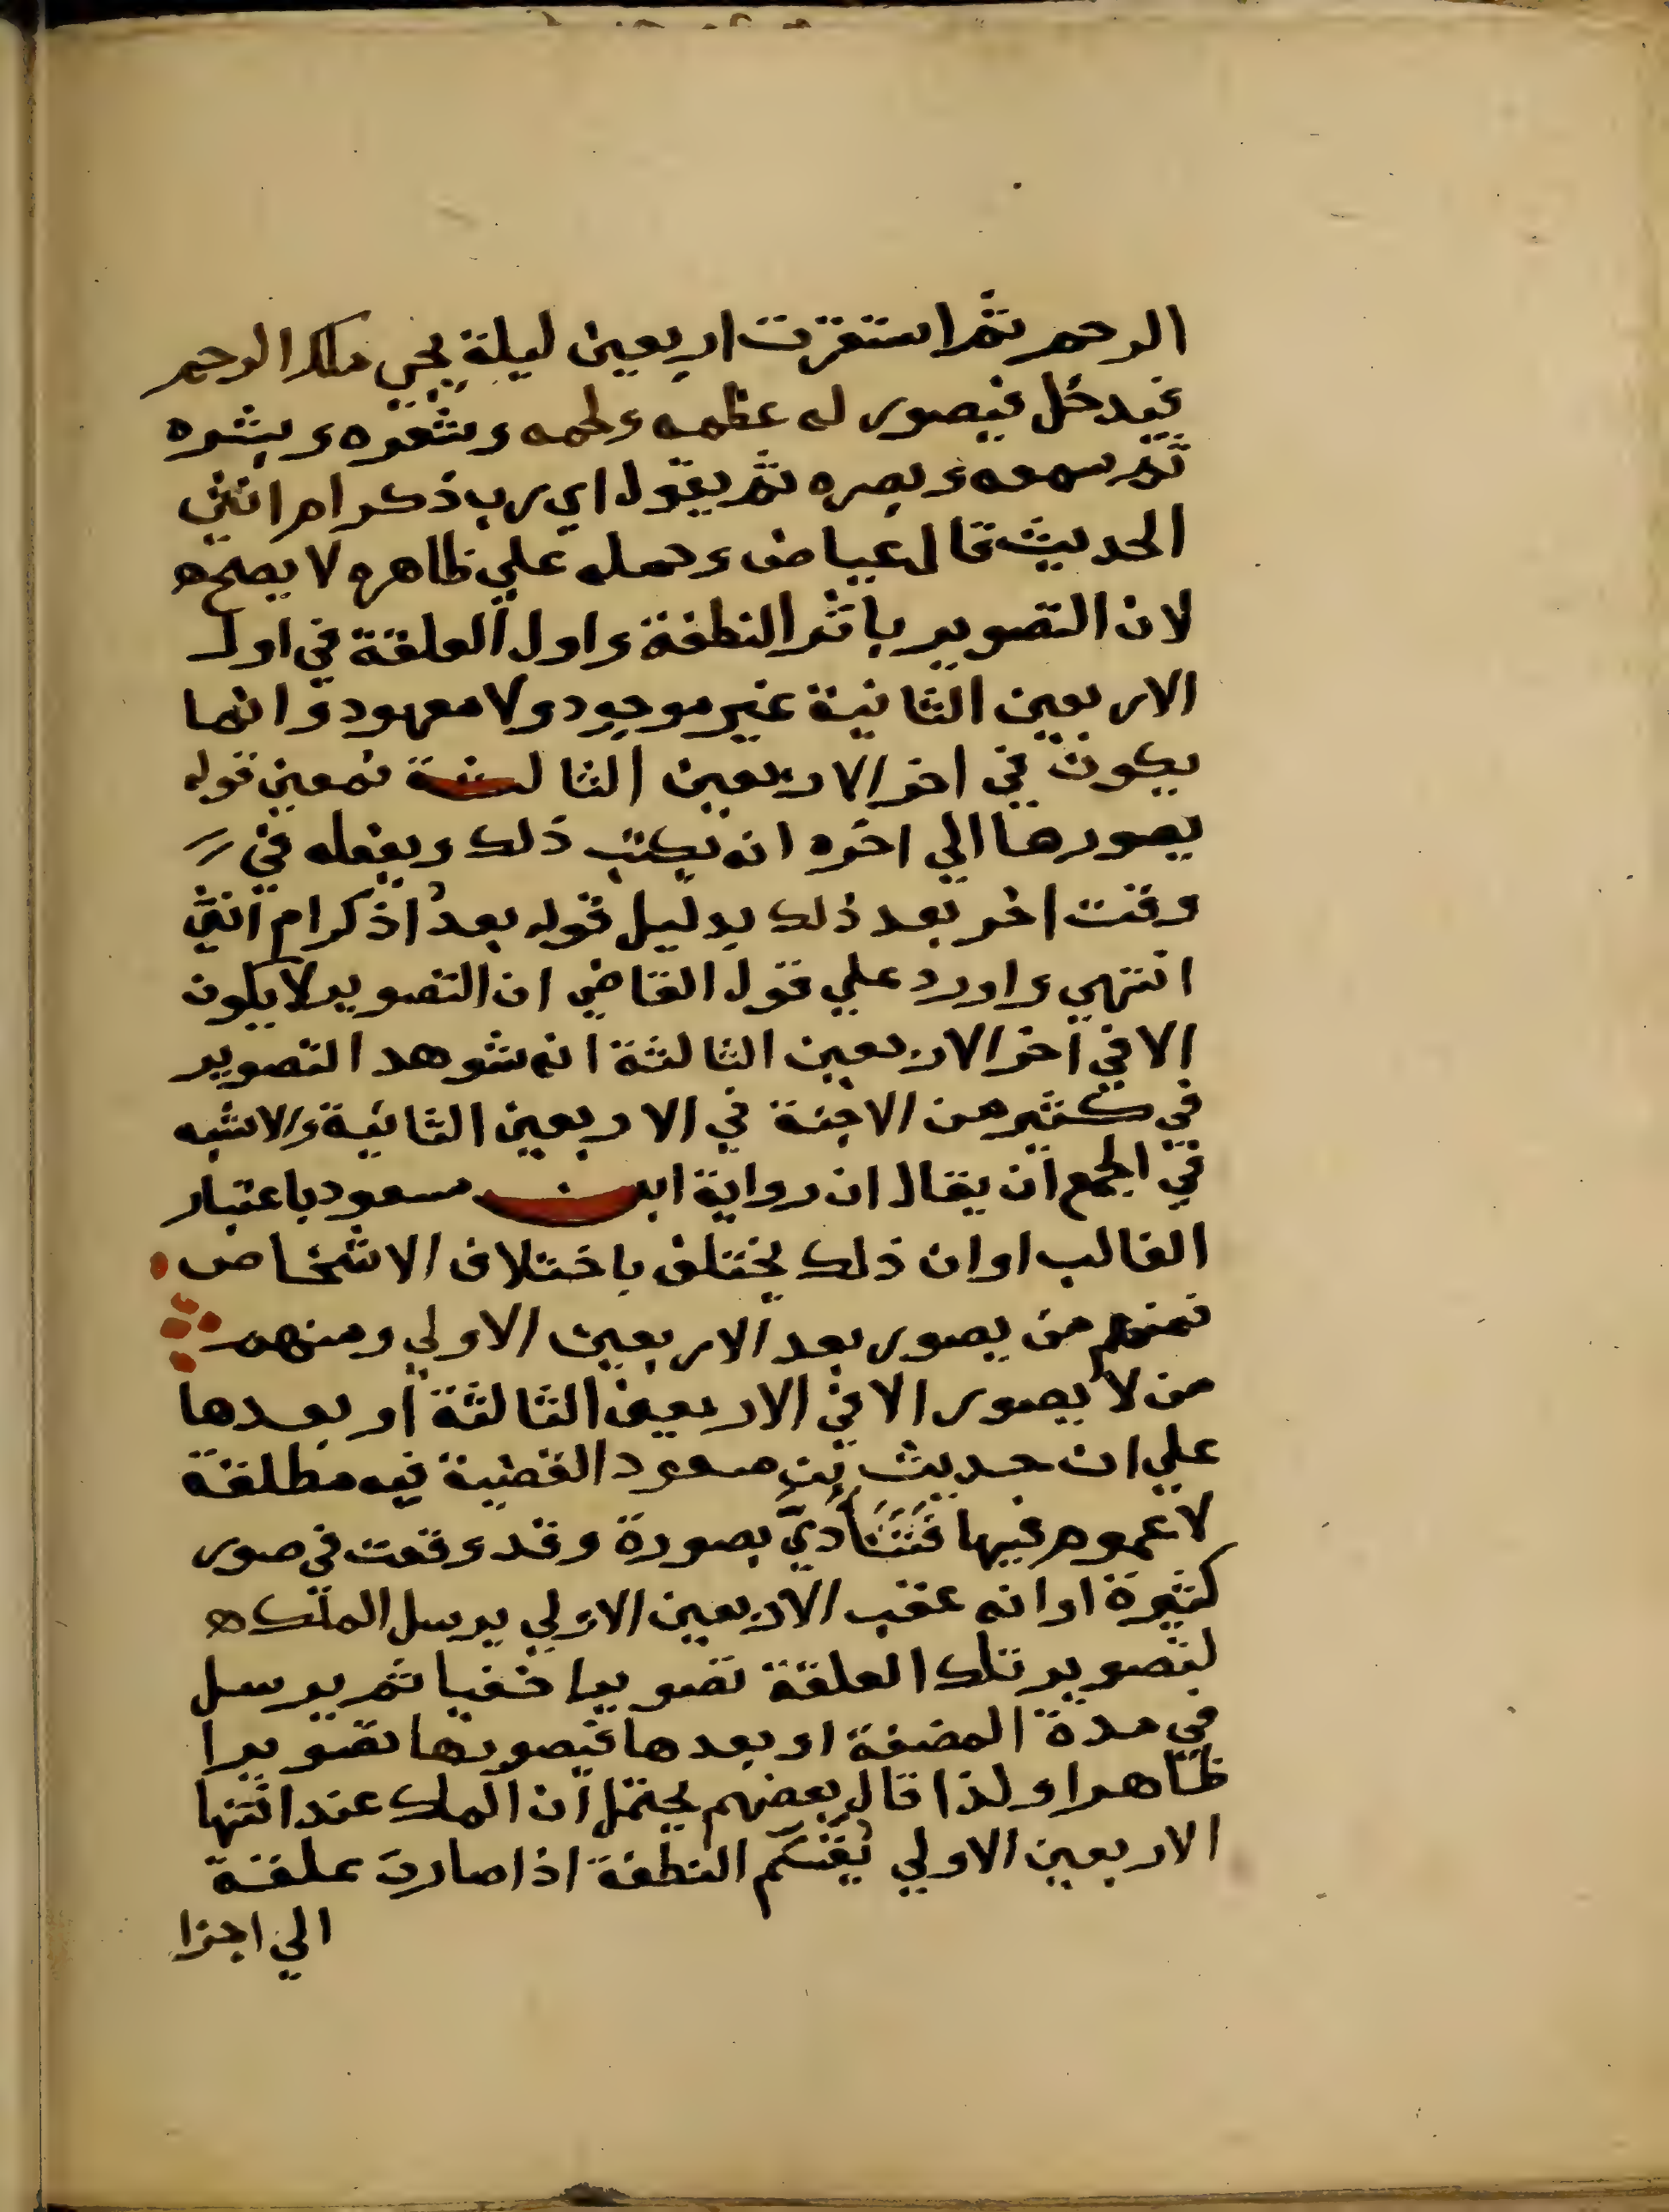 الرحم ثم استقرت اربعين ليلة يجي ملك الرحم
فيدخل فيصور له عظمه ولحمه وشعره وبشره
ثم سمعه وبصره ثم يقول اي رب ذكر ام انثي
الحديث قال عياض وحمله علي ظاهره لا يصح ه
لان التصوير باثر النطفة واول العلقة في اول
الاربعين الثانية غير موجود ولا معهود وانما
يكون في اخر الاربعين الثالثة فمعني قوله
يصورها الي اخره انه يكتب ذلك ويفعله في
وقت اخر بعد ذلك بدليل قوله بعد اذكر ام انثي
انتهي واورد علي قول القاضي ان التصوير لا يكون
الا في اخر الاربعين الثالثة انه شوهد التصوير
في كثير من الاجنة في الاربعين الثانية والاشبه
في الجمع ان يقال ان رواية ابن مسعود باعتبار
الغالب او ان ذلك يختلف باختلاف الاشخاص
فمنهم من يصور بعد الاربعين الاولي ومنهم
من لا يصور الا في الاربعين الثالثة او بعدها
علي ان حديث بن مسعود القضية فيه مطلقة
لا عموم فيها فتتأدي بصورة وقد وقعت في صور
كثيرة او انه عقب الاربعين الاولي يرسل الملك ه
لتصوير تلك العلقة تصويرا خفيا ثم يرسل
في مدة المضغة او بعدها فيصورها تصويرا
ظاهرا ولذا قال بعضهم يحتمل ان الملك عند انتها
الاربعين الاولي يقسم النطفة اذا صارت علقة
الي اجزا